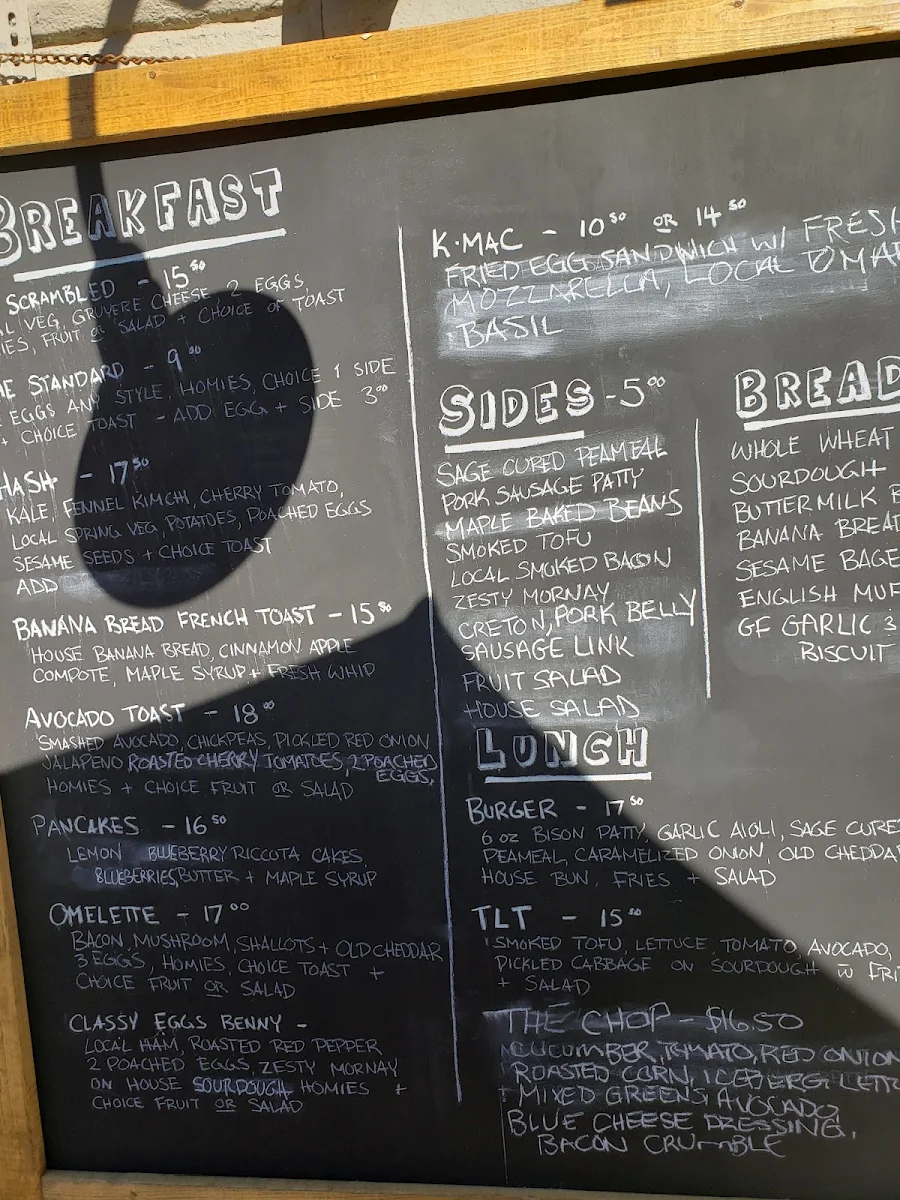 BREAKFAST
SCRAMBLED - 15⁵⁰
VEG, GRUYERE CHEESE 2 EGGS
FRUIT OR SALAD + CHOICE OF TOAST
STANDARD - 9⁰⁰
EGGS ANY STYLE, HOMIES, CHOICE 1 SIDE
+ CHOICE TOAST - ADD EGG + SIDE 3⁰⁰
HASH - 17⁵⁰
KALE, FENNEL KIMCHI, CHERRY TOMATO,
LOCAL SPRING VEG, POTATOES, POACHED EGGS
SESAME SEEDS + CHOICE TOAST
ADD
BANANA BREAD FRENCH TOAST - 15⁵⁰
HOUSE BANANA BREAD, CINNAMON APPLE
COMPOTE, MAPLE SYRUP + FRESH WHIP
AVOCADO TOAST - 18⁰⁰
SMASHED AVOCADO, CHICKPEAS, PICKLED RED ONION
JALAPENO ROASTED CHERRY TOMATOES, 2 POACHED
EGGS,
HOMIES + CHOICE FRUIT OR SALAD
PANCAKES - 16⁵⁰
LEMON BLUEBERRY RICCOTA CAKES,
BLUEBERRIES, BUTTER + MAPLE SYRUP
OMELETTE - 17⁰⁰
BACON, MUSHROOM, SHALLOTS + OLD CHEDDAR
3 EGGS, HOMIES, CHOICE TOAST +
CHOICE FRUIT OR SALAD
CLASSY EGGS BENNY -
LOCAL HAM, ROASTED RED PEPPER
2 POACHED EGGS, ZESTY MORNAY
ON HOUSE SOURDOUGH HOMIES +
CHOICE FRUIT OR SALAD
K·MAC - 10⁵⁰ OR 14⁵⁰
FRIED EGG SANDWICH W/ FRESH
MOZZARELLA, LOCAL TOMA
BASIL
SIDES - 5⁰⁰
SAGE CURED PEAMEAL
PORK SAUSAGE PATTY
MAPLE BAKED BEANS
SMOKED TOFU
LOCAL SMOKED BACON
ZESTY MORNAY
CRETON, PORK BELLY
SAUSAGE LINK
FRUIT SALAD
HOUSE SALAD
BREAD
WHOLE WHEAT
SOURDOUGH
BUTTERMILK B
BANANA BREA
SESAME BAGE
ENGLISH MUF
GF GARLIC &
BISCUIT
LUNCH
BURGER - 17⁵⁰
6 oz BISON PATTY, GARLIC AIOLI, SAGE CURE
PEAMEAL, CARAMELIZED ONION, OLD CHEDDA
HOUSE BUN, FRIES + SALAD
TLT - 15⁵⁰
SMOKED TOFU, LETTUCE, TOMATO, AVOCADO,
PICKLED CABBAGE ON SOURDOUGH w̄ FRI
+ SALAD
THE CHOP - $16.50
CUCUMBER, TOMATO, RED ONION
ROASTED CORN, ICEBERG LETT
MIXED GREENS, AVOCADO,
BLUE CHEESE DRESSING,
BACON CRUMBLE